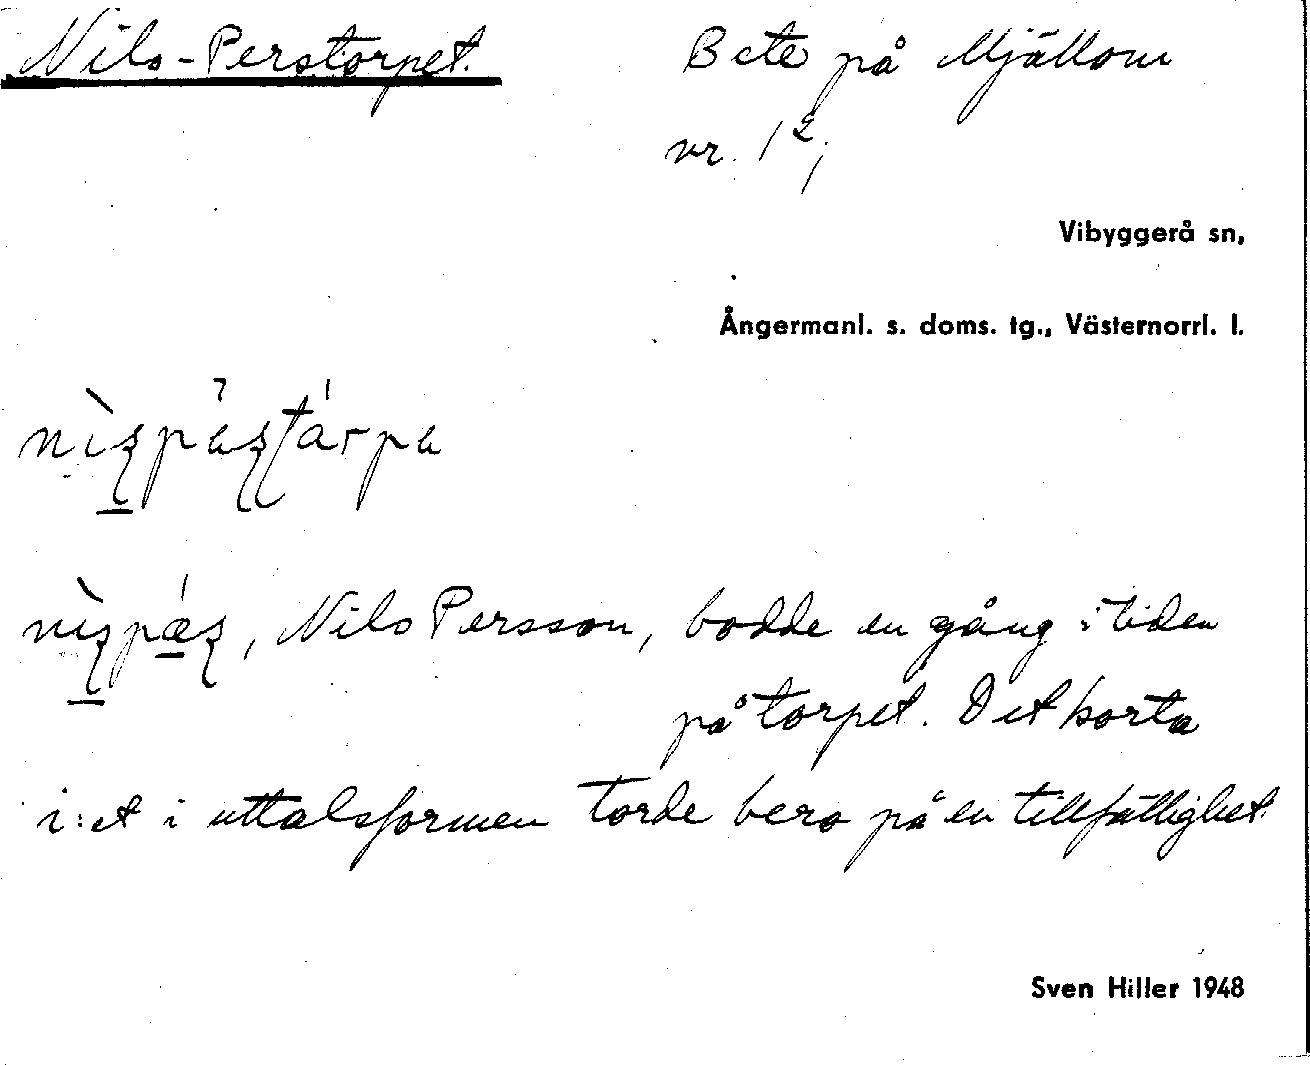 Nils-Perstorpet.
Bete på Mjällom
nr. 1²,
Vibyggerå sn,
Ångermanl. s. doms. tg., Västernorrl. l.
Nils Persson, bodde en gång i tiden
på torpet. Det korta
i:et i uttalsformen torde bero på en tillfällighet.
Sven Hiller 1948